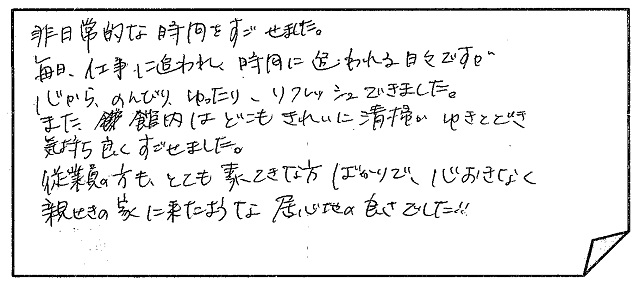 非日常的な時間をすごせました。
毎日、仕事に追われ、時間に追われる日々ですが
心から、のんびり、ゆったり、リフレッシュできました。
また、館内はどこもきれいに清掃がゆきとどき
気持ち良くすごせました。
従業員の方も、とても素てきな方ばかりで、心おきなく
親せきの家に来たような居心地の良さでした!!